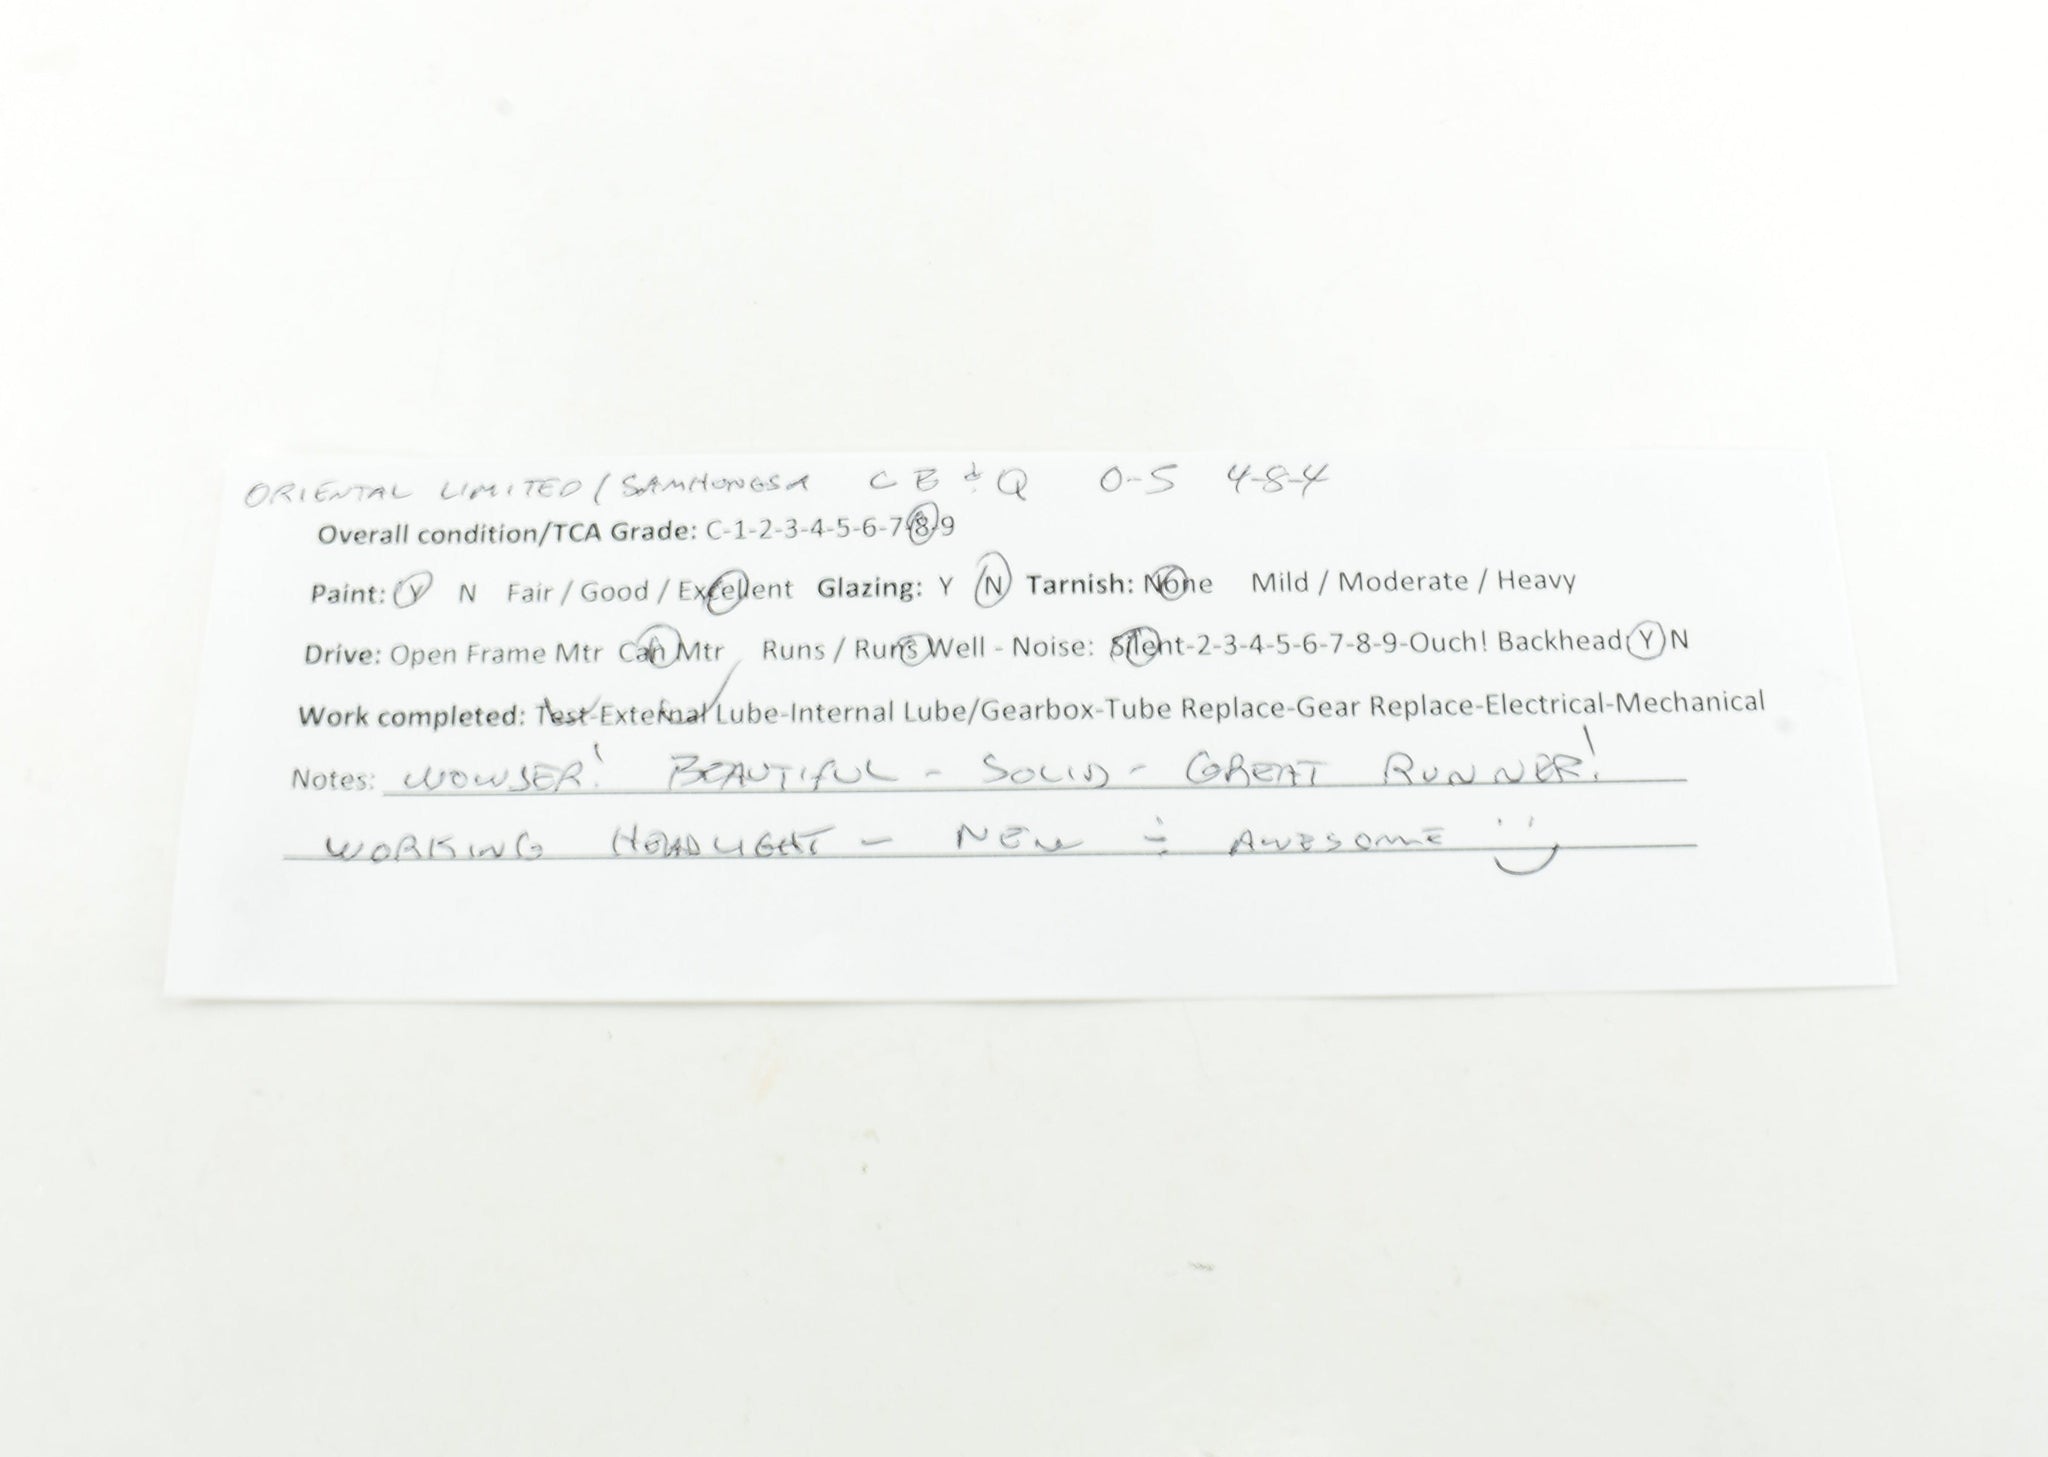 ORIENTAL LIMITED / SAMHONGSA CB&Q O-5 4-8-4
Overall condition/TCA Grade: C-1-2-3-4-5-6-7-8-9
Paint: Y N Fair / Good / Excellent Glazing: Y N Tarnish: None Mild / Moderate / Heavy
Drive: Open Frame Mtr Can Mtr Runs / Runs Well - Noise: Silent-2-3-4-5-6-7-8-9-Ouch! Backhead: Y N
Work completed: Test-External Lube-Internal Lube/Gearbox-Tube Replace-Gear Replace-Electrical-Mechanical
Notes: WOWSER! BEAUTIFUL - SOLID - GREAT RUNNER!
WORKING HEADLIGHT - NEW & AWESOME